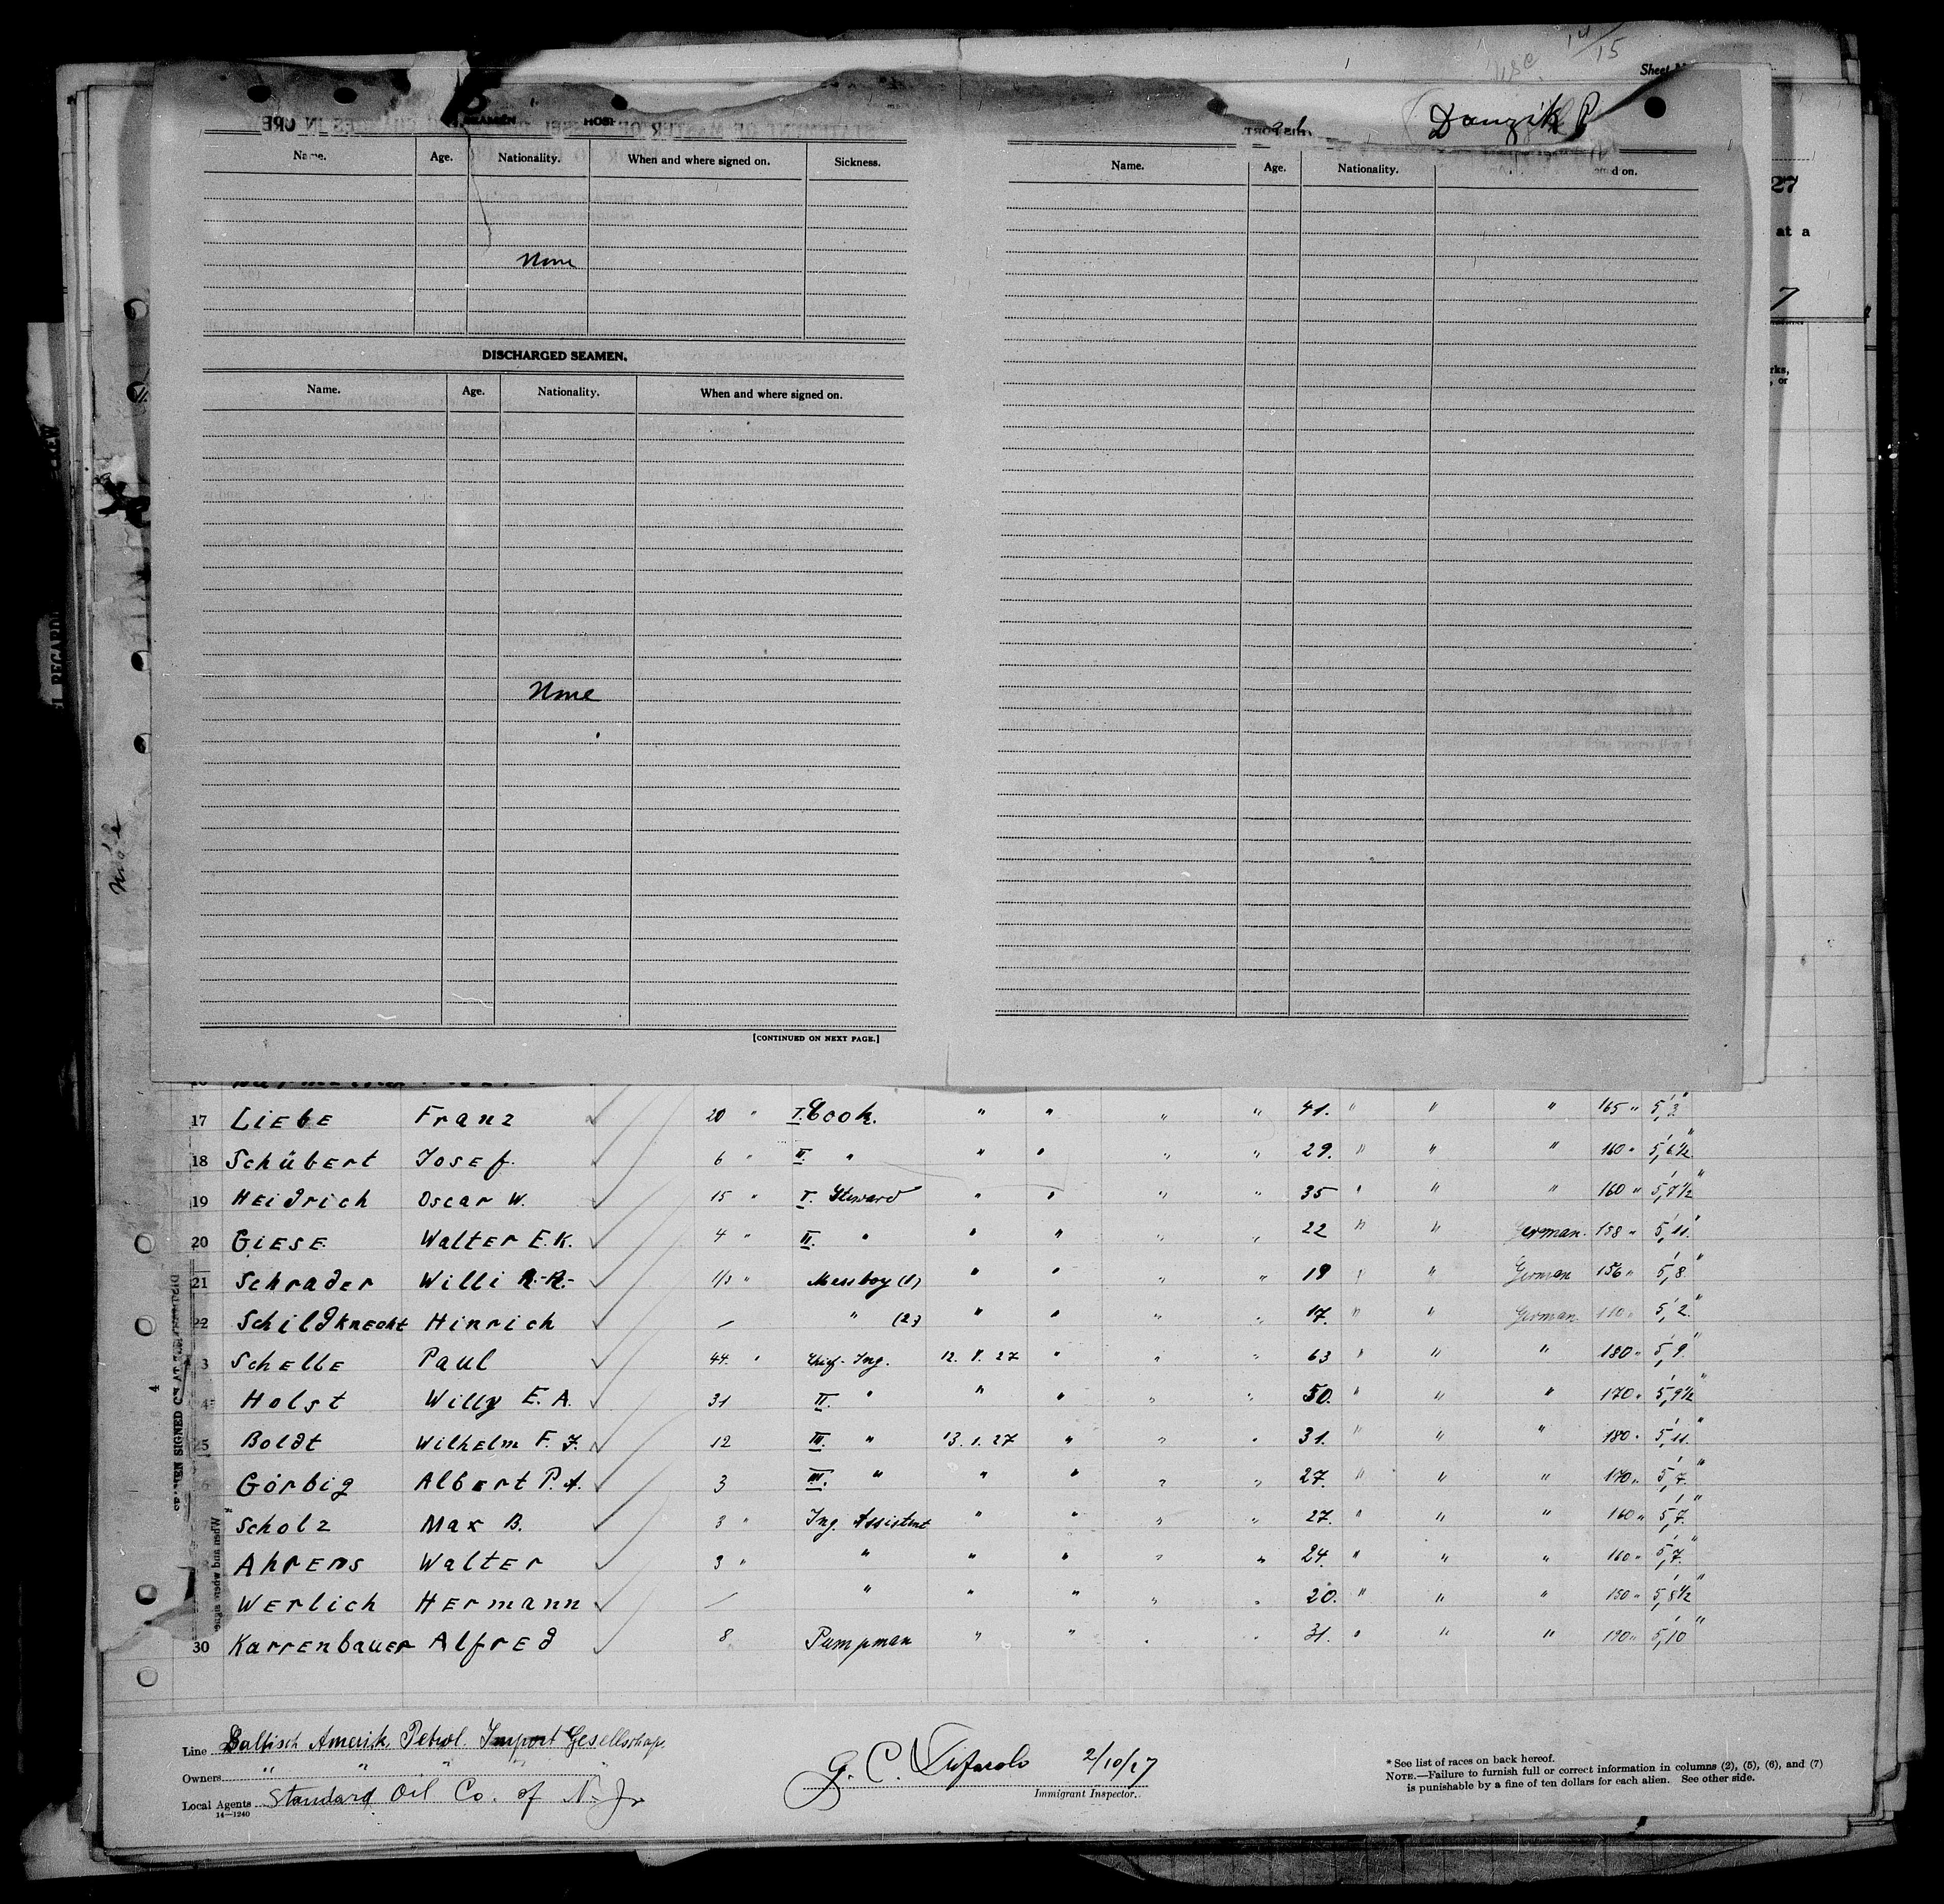 Sheet
14/15
Danzik P
SEAMEN
Name. Age. Nationality. When and where signed on. Sickness.
None
DISCHARGED SEAMEN.
Name. Age. Nationality. When and where signed on.
None
[CONTINUED ON NEXT PAGE.]
Name. Age. Nationality. d on.
27
at a
7
rks,
, or
17 Liebe Franz 20 " I. Cook. " " " " 41. " " " 165 " 5,3"
18 Schübert Josef. 6 " II. " " " " " 29. " " " 160 " 5,6½"
19 Heidrich Oscar W. 15 " I. Steward " " " " 35 " " " 160 " 5,7½"
20 Giese Walter E.K. 4 " II. " " " " " 22 " " German. 158 " 5,11."
21 Schrader Willi 1/3 " Messboy (1) " " " " 19 " " German 156 " 5,8"
22 Schildknecht Hinrich — " (2) " " " " 17. " " German 110 " 5,2"
3 Schelle Paul 44. " Chief-Ing. 12. 1. 27 " " " 63 " " " 180 " 5,9."
4 Holst Willy E. A. 31 II. " " " " " 50. " " " 170 " 5,9½"
25 Boldt Wilhelm F. J. 12 III. " 13. 1. 27 " " " 31. " " " 180 " 5,11."
6 Görbig Albert P. A. 3 III. " " " " " 27. " " " 170 " 5,7"
Scholz Max B. 3 " Ing. Assistent " " " " 27. " " " 160 " 5,7."
Ahrens Walter 3 " " " " " " 24. " " " 160 " 5,7."
Werlich Hermann — " " " " " 20. " " " 150 " 5,8½"
30 Karrenbauer Alfred 8 Pumpman " " " " 31. " " " 190 " 5,10"
Line Baltisch Amerik. Petrol. Import Gesellschaft.
Owners " " " "
Local Agents Standard Oil Co. of N. J.
14—1240
G. C. 2/10/27
Immigrant Inspector.
* See list of races on back hereof.
NOTE.—Failure to furnish full or correct information in columns (2), (5), (6), and (7)
is punishable by a fine of ten dollars for each alien. See other side.